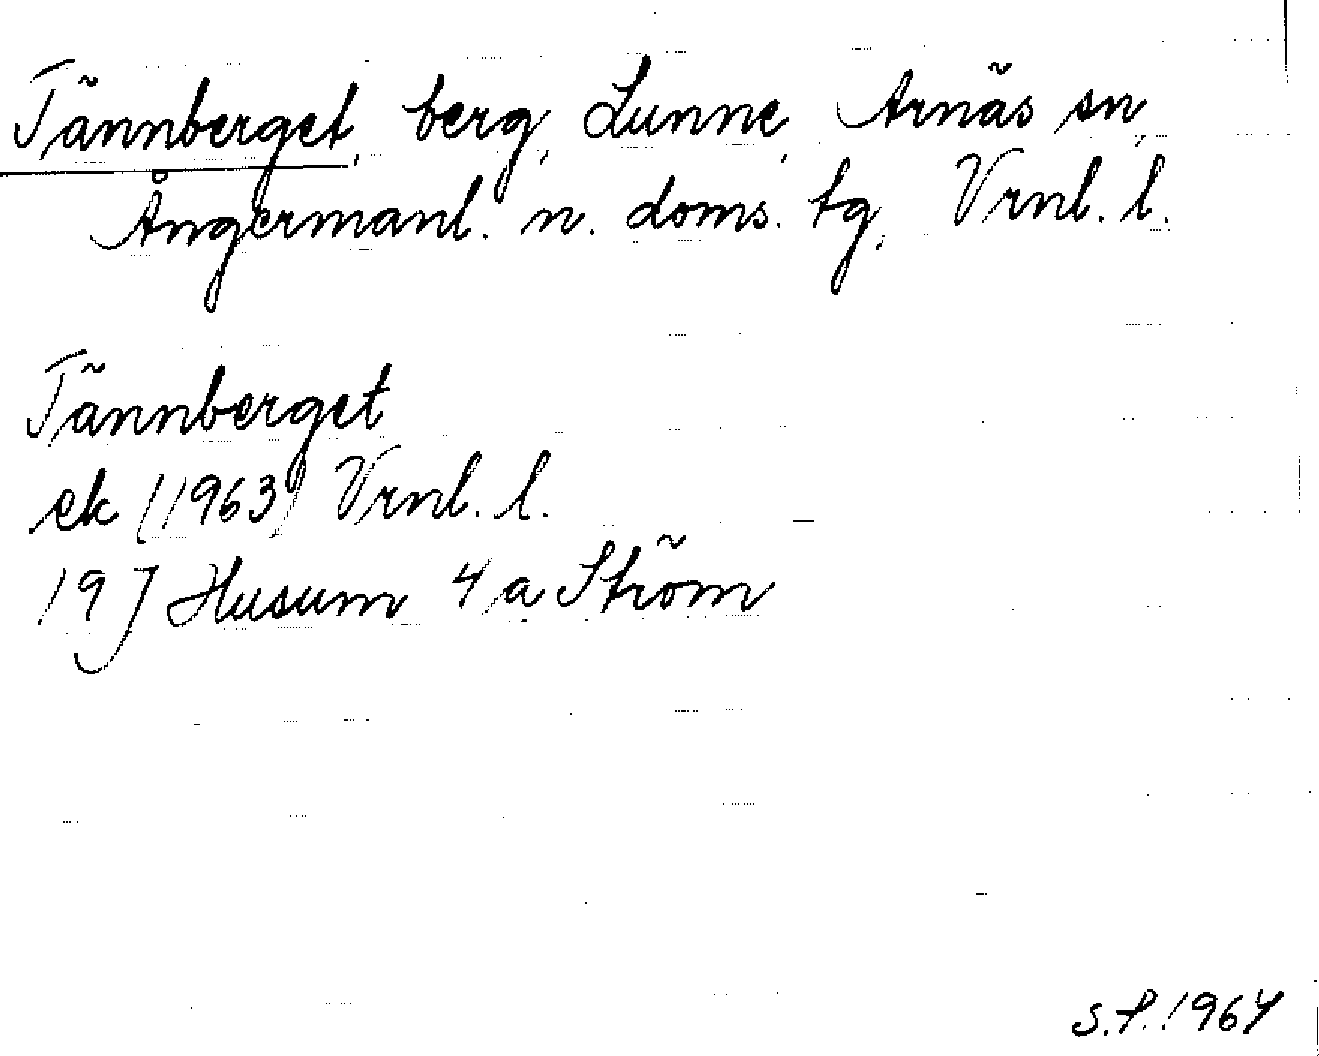 Tännberget, berg, Lunne, Arnäs sn,
Ångermanl. n. doms. tg, Vrnl. l.
Tännberget
ek (1963) Vrnl. l.
19 J Husum 4 a Ström
S.P. 1964